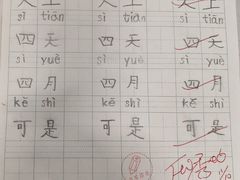 sì tiān sì tiān sì tiān
四天 四天 四天
sì yuè sì yuè sì yuè
四月 四月 四月
kě shì kě shì kě shì
可是 可是 可是